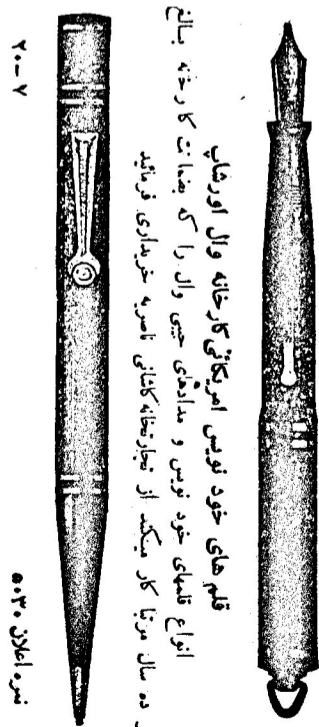 قلم های خود نویس امریکائی کارخانه وال اورشاپ
انواع قلمهای خود نویس و مدادهای جیبی وال را که بضمانت کارخانه بالغ
ده سال مرتبا کار میکند از تجارتخانه کاشانی ناصریه خریداری فرمائید
نمره اعلان ۵۰۳۰
۲۰-۷